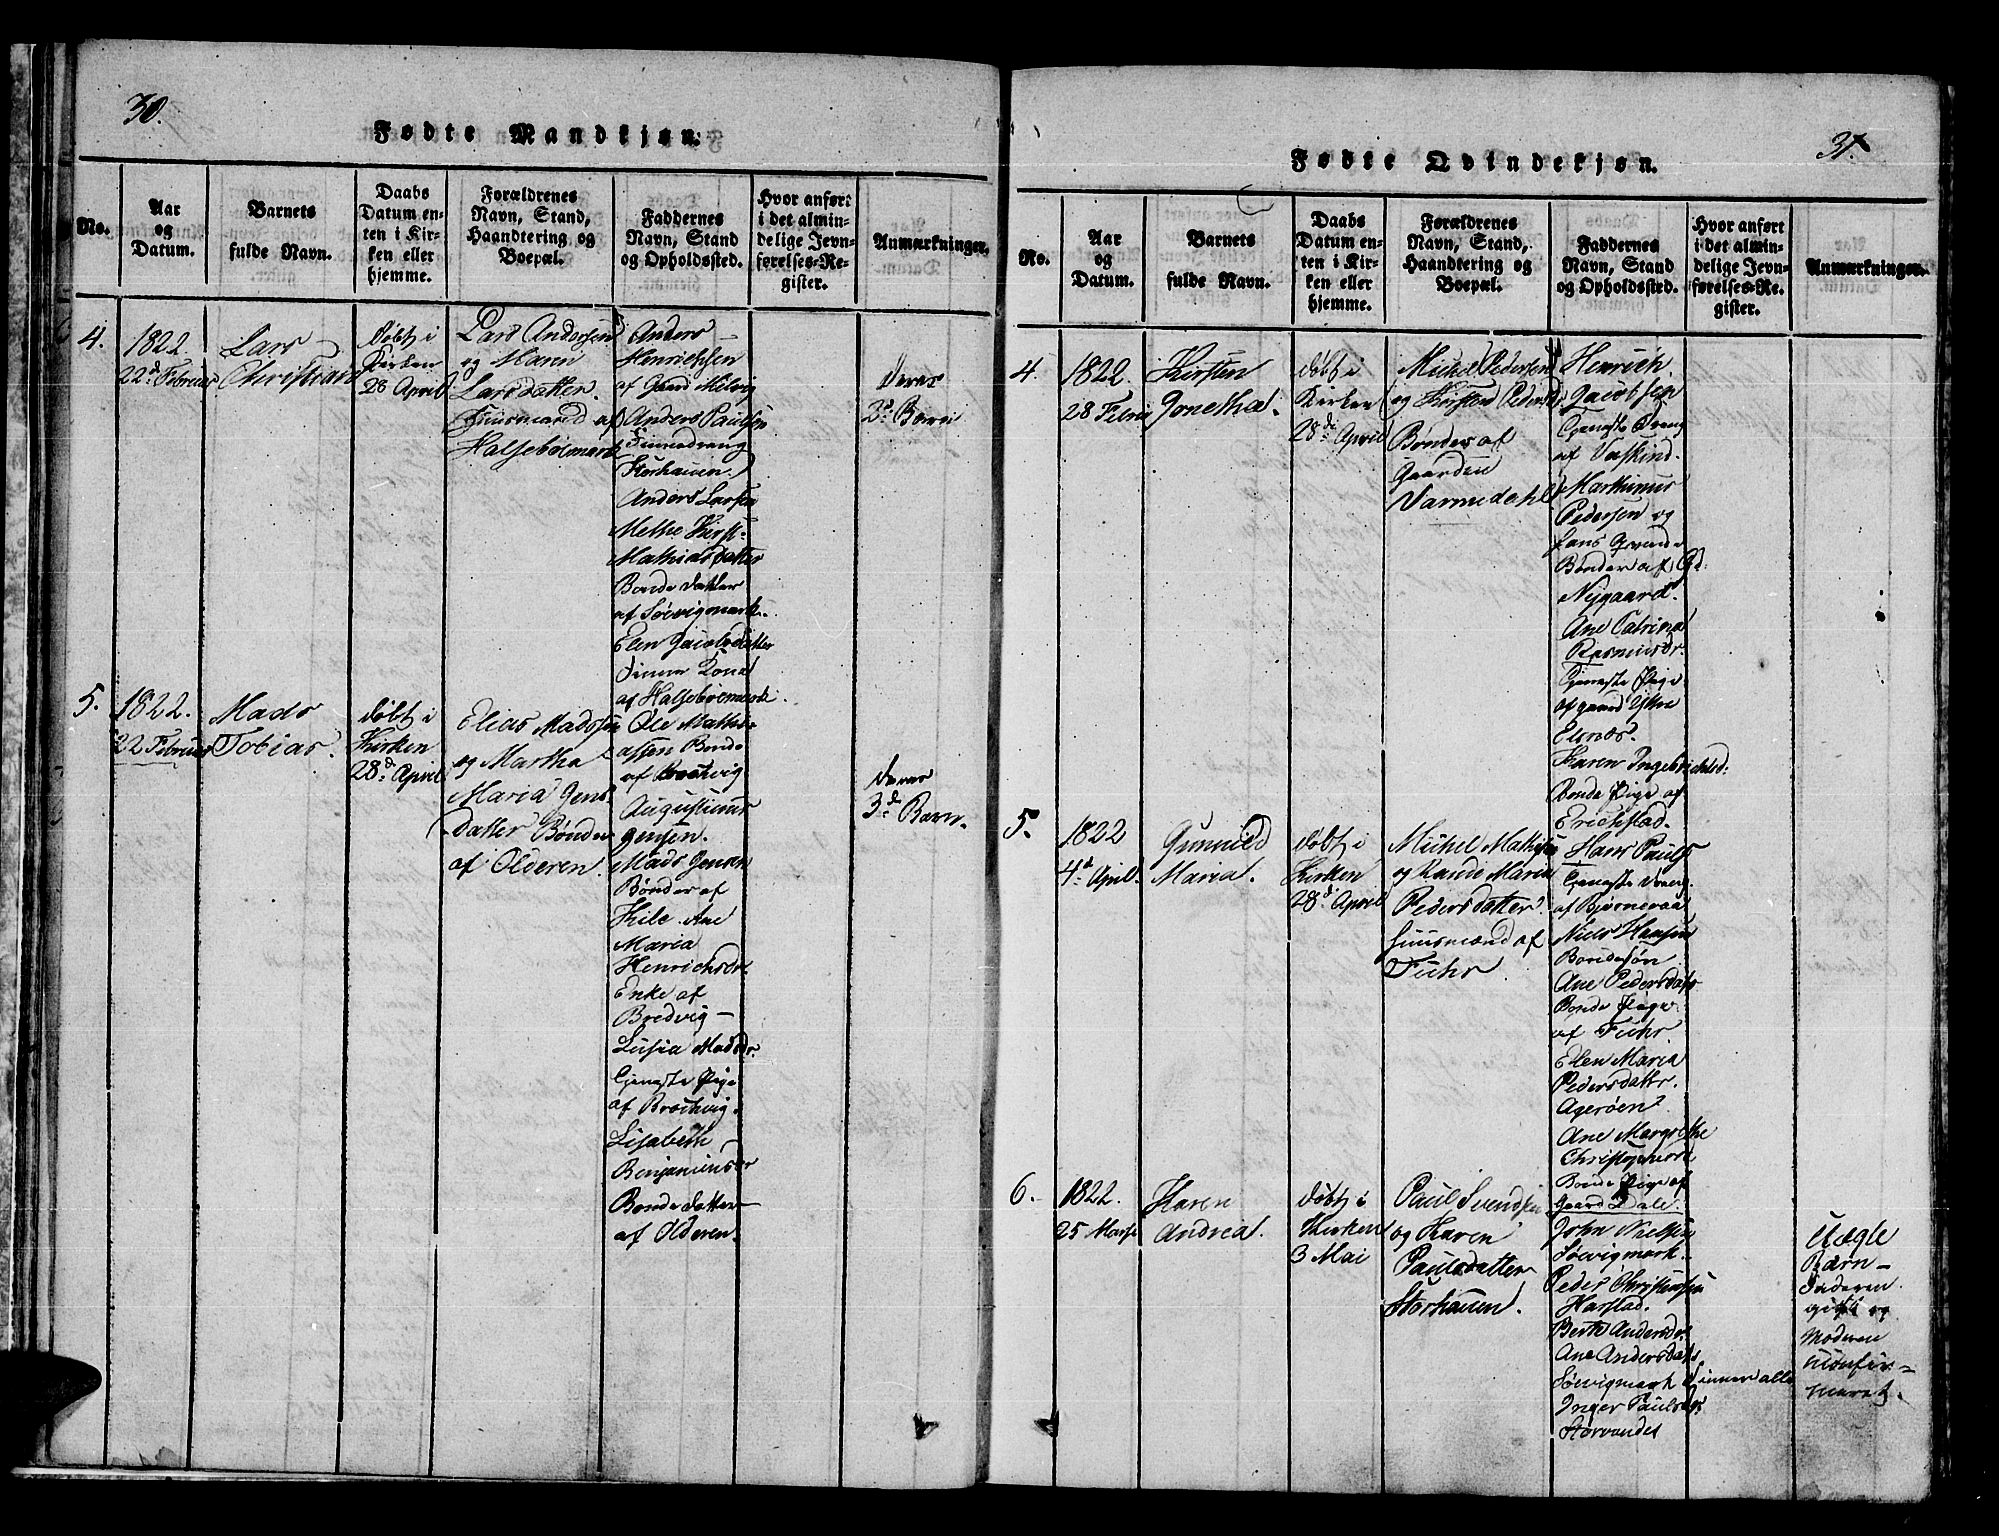 30.
Fødte Mandkjøn.
No.
Aar
og
Datum.
Barnets
fulde Navn.
Daabs
Datum en-
ten i Kir-
ken eller
hjemme.
Forældrenes
Navn, Stand,
Haandtering og
Boepæl.
Faddernes
Navn, Stand
og Opholdssted.
Hvor anført
i det almin-
delige Jevn-
førelses-Re-
gister.
Anmærkninger.
4.
1822.
22d Februar
Lars
Christian
døbt i
Kirken
28 April
Lars Andersen
og Maren
Larsdatter.
Huusmænd af
Halsebøemark
Anders
Henrichsen
af Gaard Melvig
Anders Paulsen
Storhauen.
Anders Larsen
Methe Kirst-
Mathiasdatter
Bonde datter
af Søevigmark.
Elen Jacobsdatter
af Halsebøemark.
deres
2d Barn
5.
1822.
22 Februar
Mads
Tobias.
døbt i
Kirken
28d April
Elias Madssen
og Martha
Maria Jens
datter Bønder
af Olderen.
Ole Mathi-
assen Bonde
af Brochvig
Augustinus
Jensen.
Mads Jensen
Bønder af
Kile. Ane
Maria
Henrichsdr.
Enke af
Bredvig -
Lusia Madsdr.
Tjeneste Pige
af Brochvig.
Lisabeth
Benjaminsdr
Bonde datter
af Olderen.
deres
3d Barn.
31.
Fødte Qvindekjøn.
No.
Aar
og
Datum.
Barnets
fulde Navn.
Daabs
Datum en-
ten i Kir-
ken eller
hjemme.
Forældrenes
Navn, Stand,
Haandtering og
Boepæl.
Faddernes
Navn, Stand
og Opholdssted.
Hvor anført
i det almin-
delige Jevn-
førelses-Re-
gister.
Anmærkninger.
4.
1822.
28 Febru
Kirsten
Jonetha.
døbt i
Kirken
28d April
Michel Pedersen
og Kirsten Pedersd
Bønder af
Gaarden
Varmedahl
Henrich
Jacobsen
Tjeneste Dreng
af Vaskind.
Marthinus
Pedersen og
Bønder af Gd:
Nygaard.
Ane Catrina
Rasmusdr.
Tjeneste Pige
af gaard Ytre
Elsnæs.
Karen Ingebrichtsd:
Bonde Pige af
Erichstad.
5.
1822
4d April.
Gunnild
Maria.
døbt i
Kirken
28d April
Michel Mathisen
og Rande Marie
Pedersdatter.
Huusmænd af
Fuhr.
Hans Pauls
Tjeneste Dreng
af Bjørneraa
Niels Hansen
Bondesøn.
Ane Pedersdatr
Bonde Pige
af Fuhr.
Elen Maria
Pedersdattr.
Agerøen.
Ane Margrethe
Christophersd
Bonde Pige af
Gaard Dale.
6.
1822.
25 Marti
Karen
Andrea.
døbt i
Kirken
3 Mai
Paul Svendsen
og Karen
Paulsdatter
Storhauen.
John Nielsen
Søevigmark.
Peder Christensen
Harstad.
Berth Andersdr
Ane Andersdatr
Søevigmark
Inger Paulsdr
Storvandet
Uægte
Barn -
Faderen
gift og
Moderen
uconfir-
meret.